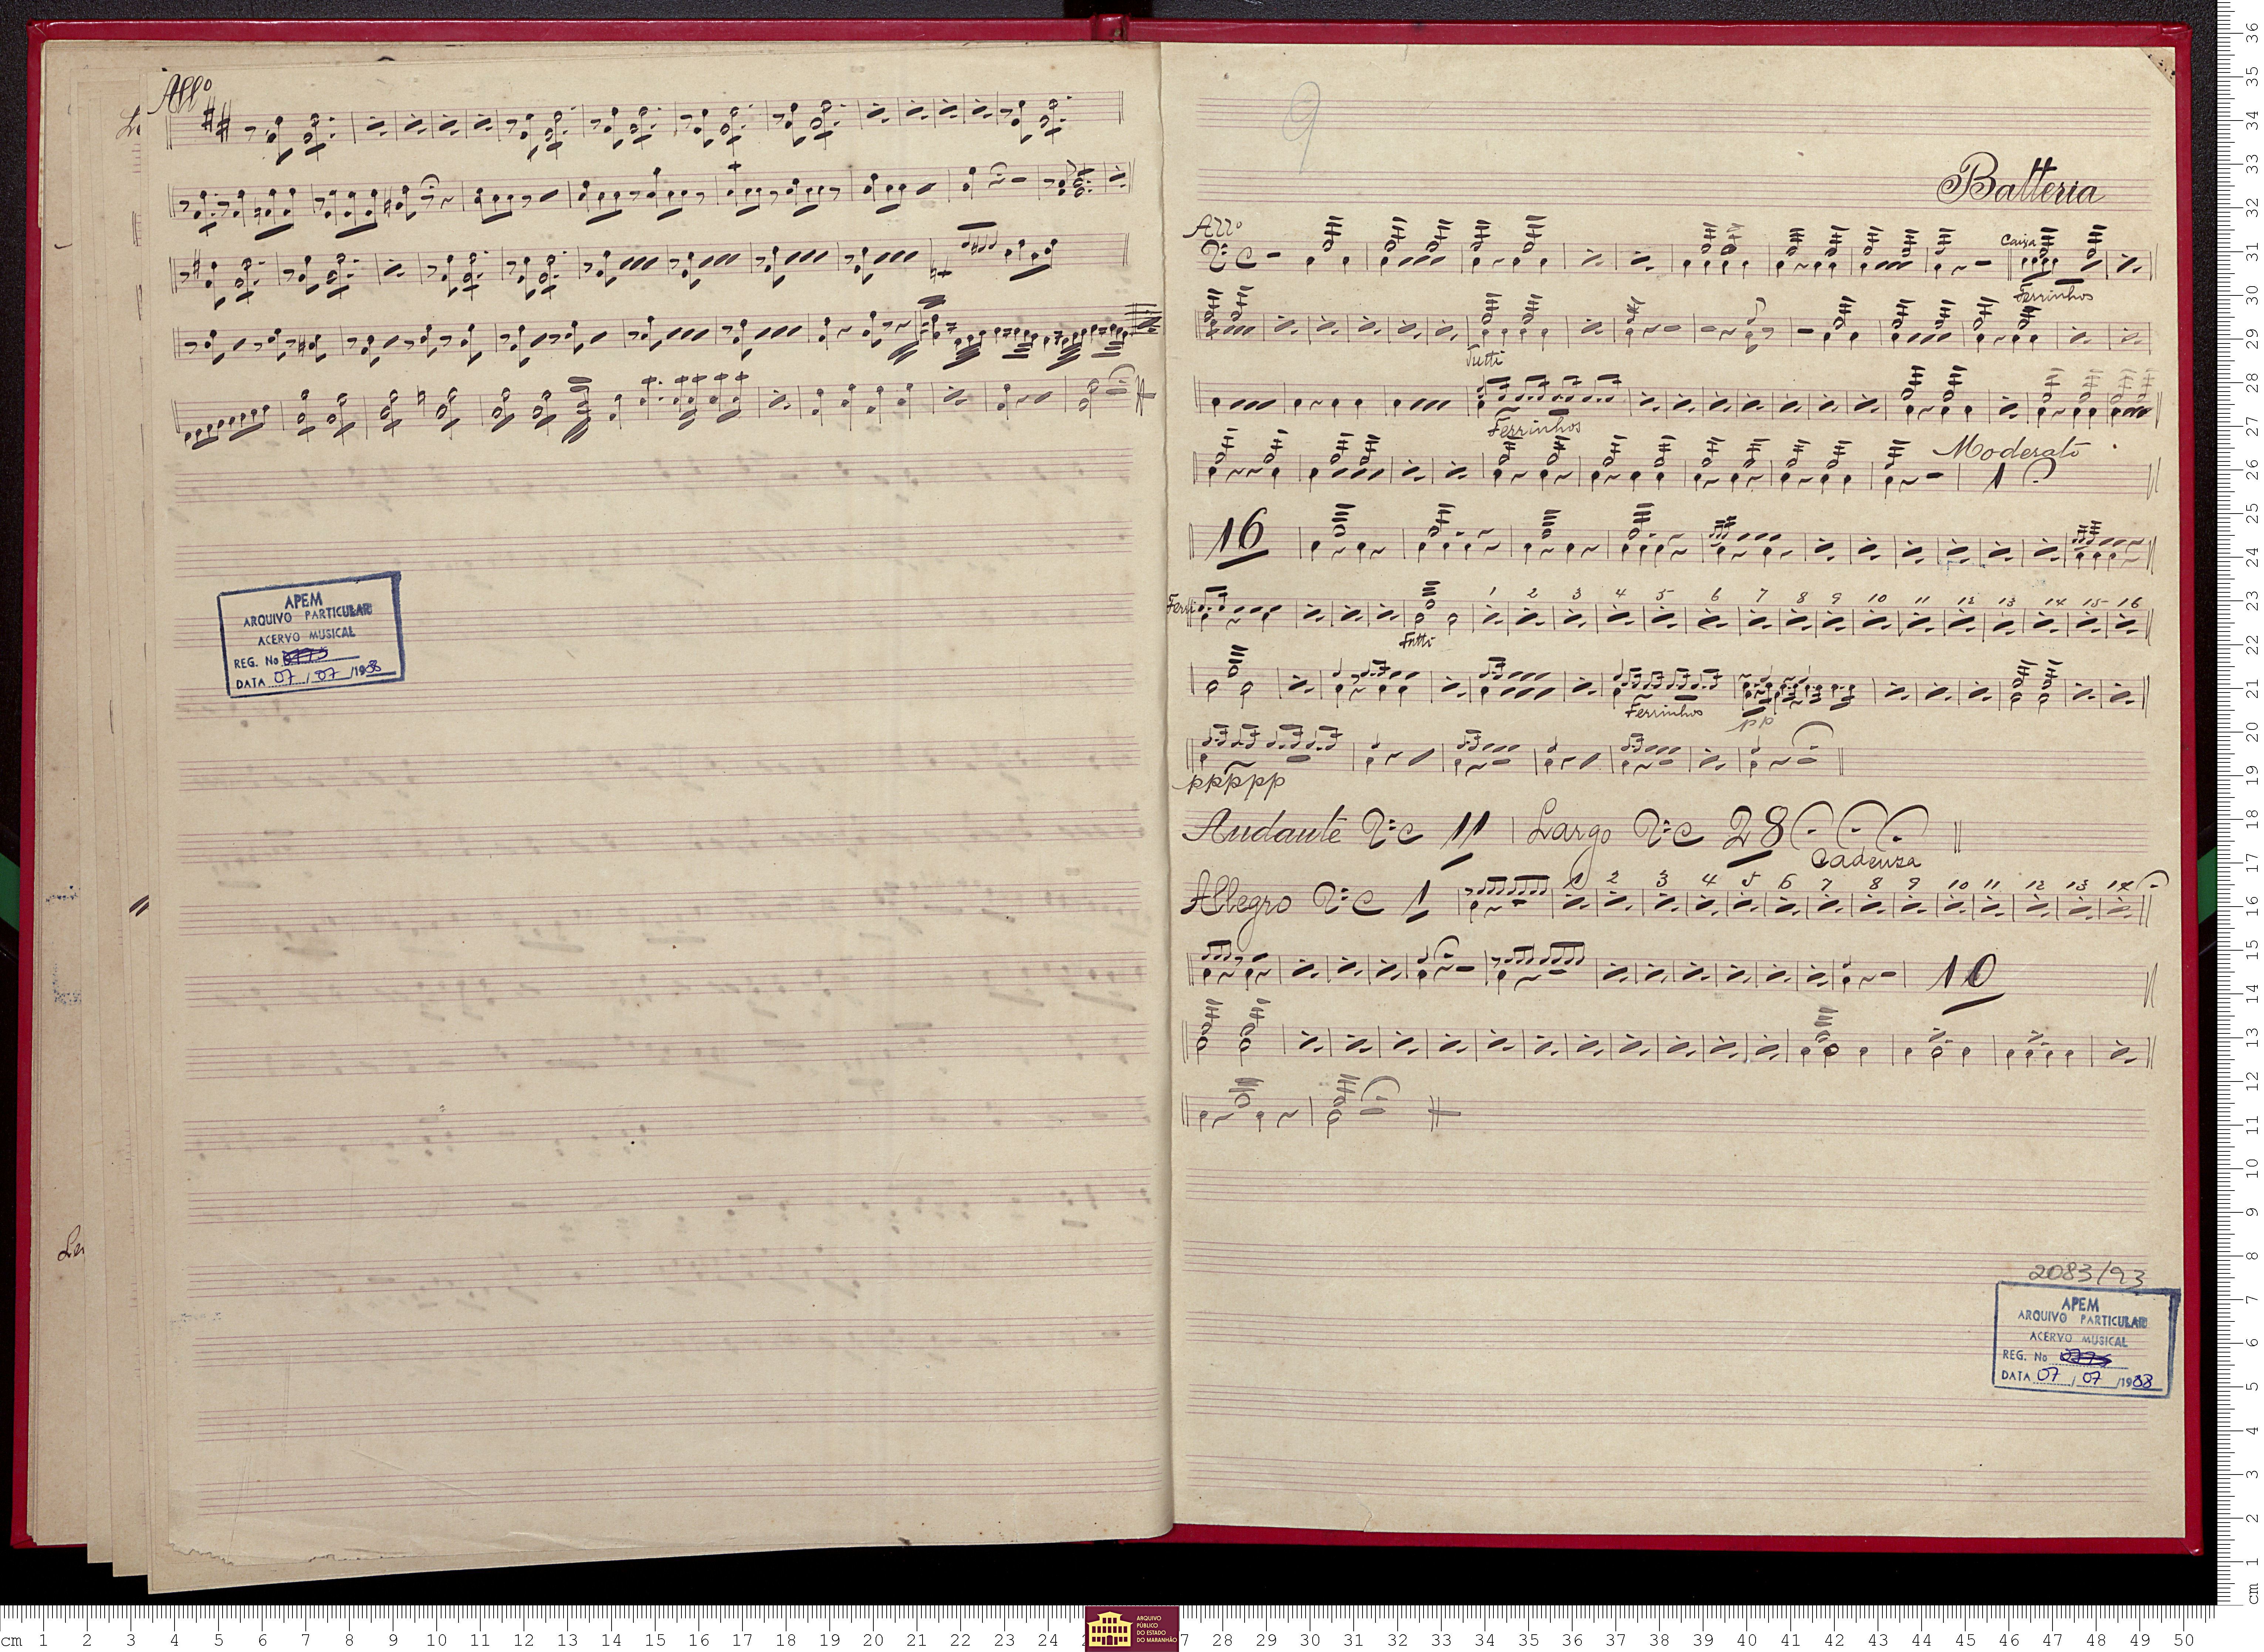 Allº
APEM
ARQUIVO PARTICULAR
ACERVO MUSICAL
REG. No
DATA 07 / 07 /1988
9
Batteria
Allº
Caixa
Ferrinhos
Tutti
Ferrinhos
Moderato
1
16
Ferri
1 2 3 4 5 6 7 8 9 10 11 12 13 14 15 16
Tutti
Ferrinhos
pp
ppppp
Andante 11 Largo 28
Cadenza
Allegro 1
1 2 3 4 5 6 7 8 9 10 11 12 13 14
10
2083/93
APEM
ARQUIVO PARTICULAR
ACERVO MUSICAL
REG. No
DATA 07 / 07 /1988
ARQUIVO
PÚBLICO
DO ESTADO
DO MARANHÃO